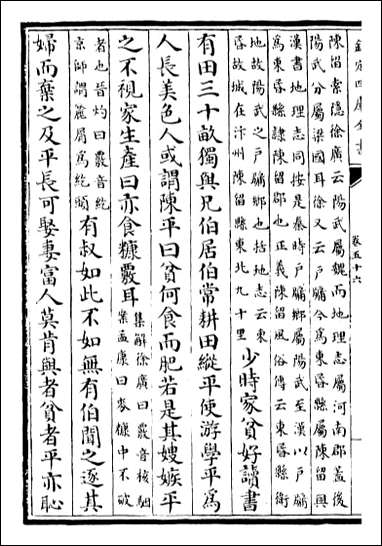 欽定四庫全書
卷五十六
陳留索隱徐廣云陽武屬魏而地理志屬河南郡蓋後
陽武分屬梁國耳徐又云戶牖今為東昏縣屬陳留興
漢書地理志同按是秦時戶牖鄉屬陽武至漢以戶牖
為東昏縣隸陳留郡也正義陳留風俗傳云東昏縣衛
地故陽武之戶牖鄉也括地志云東
昏故城在汴州陳留縣東北九十里
少時家貧好讀書
有田三十畝獨與兄伯居伯常耕田縱平使游學平為
人長美色人或謂陳平曰貧何食而肥若是其嫂嫉平
之不視家生產曰亦食糠覈耳
集解徐廣曰覈音核駰
案孟康曰麥糠中不破
者也晉灼曰覈音紇
京師謂麄屑為紇頭
有叔如此不如無有伯聞之逐其
婦而棄之及平長可娶妻富人莫肯與者貧者平亦恥